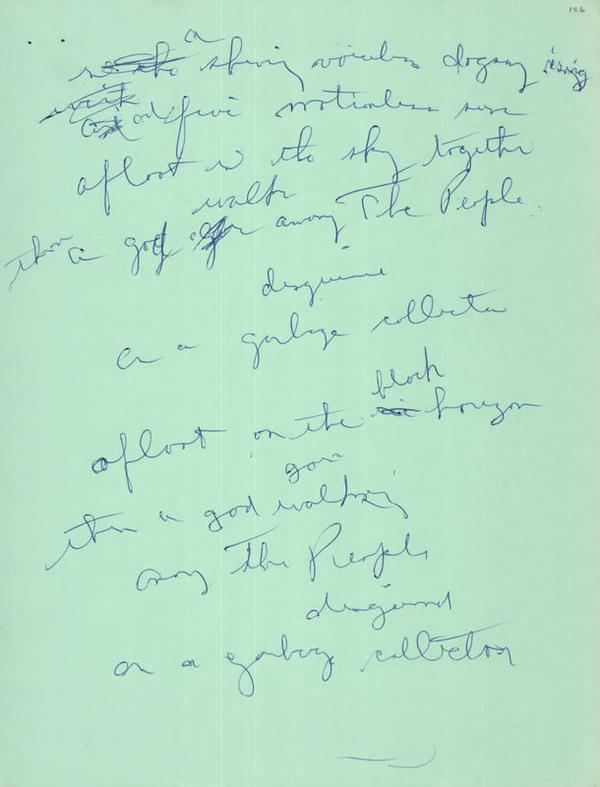 126
a
shiny voiceless rising
five motionless suns
afloat in the sky together
walks
then a god among The People.
disguised
as a garbage collector
black
afloat on the horizon
goes
then a god walking
among The People
disguised
as a garbage collector